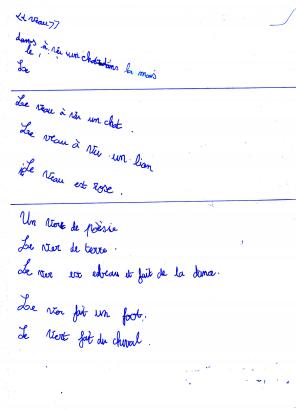 <<veau>>
dans à vu un chat dans la mais
le,
La
Le veau à vu un chat.
Le veau à vu un lion
Le veau est rose.
Un vers de poèsie
Le ver de terre.
Le ver est et fait de la dance.
Le ver fait un foot.
Le vert fat du cheval.